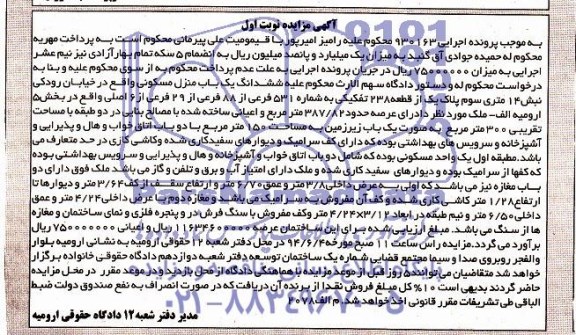 آگهی مزایده نوبت اول
به موجب پرونده اجرایی ۹۳۰۱۶۳ محکوم علیه رامیز امیرپور با قیمومیت علی پیرمانی محکوم است به پرداخت مهریه
محکوم له حمیده جوادی آق گنبد به میزان یک میلیارد و پانصد میلیون ریال به انضمام ۵ سکه تمام بهار آزادی نیز نیم عشر
اجرایی به میزان ۷۵۰۰۰۰۰۰ ریال در جریان پرونده اجرایی به علت عدم پرداخت محکوم به از سوی محکوم علیه و بنا به
درخواست محکوم له و دستور دادگاه سهم الارث محکوم علیه ششدانگ یک باب منزل مسکونی واقع در خیابان رودکی
نبش ۱۴ متری سوم پلاک یک از قطعه ۲۳۸ تفکیکی به شماره ۵۳۱ فرعی از ۸۸ فرعی از ۲۹ فرعی از ۶ اصلی واقع در بخش ۵
ارومیه الف- ملک موردنظر دارای عرصه حدود ۳۸۷/۸۲ متر مربع و اعیانی ساخته شده با مصالح بنایی در دو طبقه با مساحت
تقریبی ۳۰۰ متر مربع به صورت یک باب زیرزمین به مساحت ۱۵۰ متر مربع با دو باب اتاق خواب و هال و پذیرایی و
آشپزخانه و سرویس های بهداشتی بوده که دارای کف سرامیک و دیوارهای سفیدکاری شده وکاشی کاری در حد متعارف می
باشد. طبقه اول یک واحد مسکونی بوده که شامل دو باب اتاق خواب و آشپزخانه و هال و پذیرایی و سرویس بهداشتی بوده
که کفها از سرامیک بوده و دیوارهای سفید کاری شده و ملک دارای امتیاز آب و برق و تلفن و گاز می باشد ملک فوق دارای دو
باب مغازه نیز می باشد که اولی به عرض داخلی ۳/۸ متر و عمق ۶/۷۰ متر و ارتفاع سقف از کف ۳/۶۴ متر و دیوارها تا
ارتفاع ۱/۲۸ متر کاشی کاری شده و کف آن مفروش به سرامیک می باشد و مغازه دوم با عرض داخلی ۴/۲۴ متر و عمق
داخلی ۶/۵۰ متر و نیم طبقه در ابعاد ۳/۱۱×۴/۲۴ متر وکف مفروش با سنگ فرش در و پنجره فلزی و نمای ساختمان و مغازه
ها از سنگ می باشد. مبلغ ارزیابی شده برای این ساختمان عرصه ریال و اعیانی ۷۵۰۰۰۰۰۰۰ ریال
برآورد می گردد. مزایده راس ساعت ۱۱ صبح مورخه ۹۴/۶/۴ در محل دفتر شعبه ۱۲ حقوقی ارومیه به نشانی ارومیه بلوار
والفجر روبروی صدا و سیما مجتمع قضایی شماره یک ساختمان توسعه دفتر شعبه دوازدهم دادگاه حقوقی خانواده برگزار
خواهد شد متقاضیان می توانند ۵ روز قبل از موعد مزایده با هماهنگی دادگاه از محل بازدید و در موعد مقرر در محل مزایده
حاضر گردند بدیهی است ۱۰٪ کل مبلغ فروش نقدا از برنده آن دریافت که در صورت انصراف به نفع صندوق دولت ضبط
الباقی طی تشریفات مقرر قانونی اخذ خواهد شد. م الف ۲۰۷۸
مدیر دفتر شعبه ۱۲ دادگاه حقوقی ارومیه
۰۲۱-۸۸۳۴۹۶۷۰